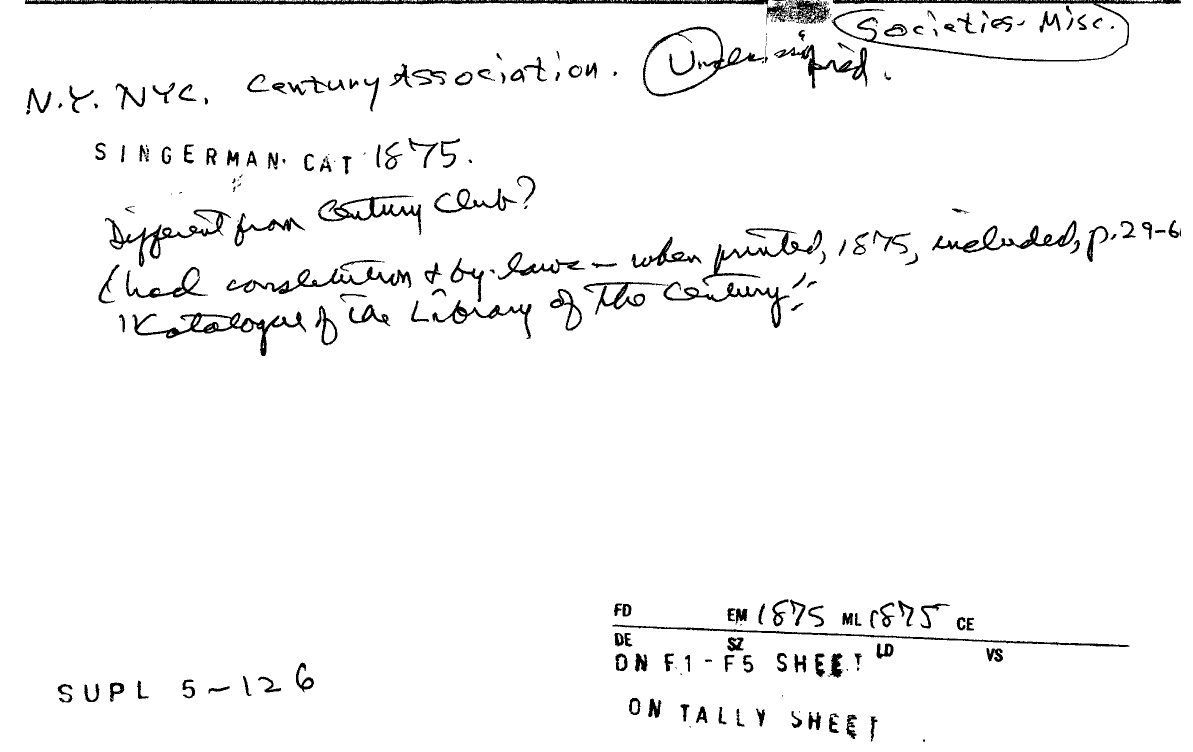 Societies- Misc.
N.Y. NYC. Century Association.
SINGERMAN. CAT 1875.
Different from Century Club?
(had constitution & by-laws - when printed, 1875, included, p.29-6
"Katalogue of the Library of The Century"
FD EM 1875 ML 1875 CE
DE SZ LD VS
ON F1-F5 SHEET
SUPL 5-126
ON TALLY SHEET